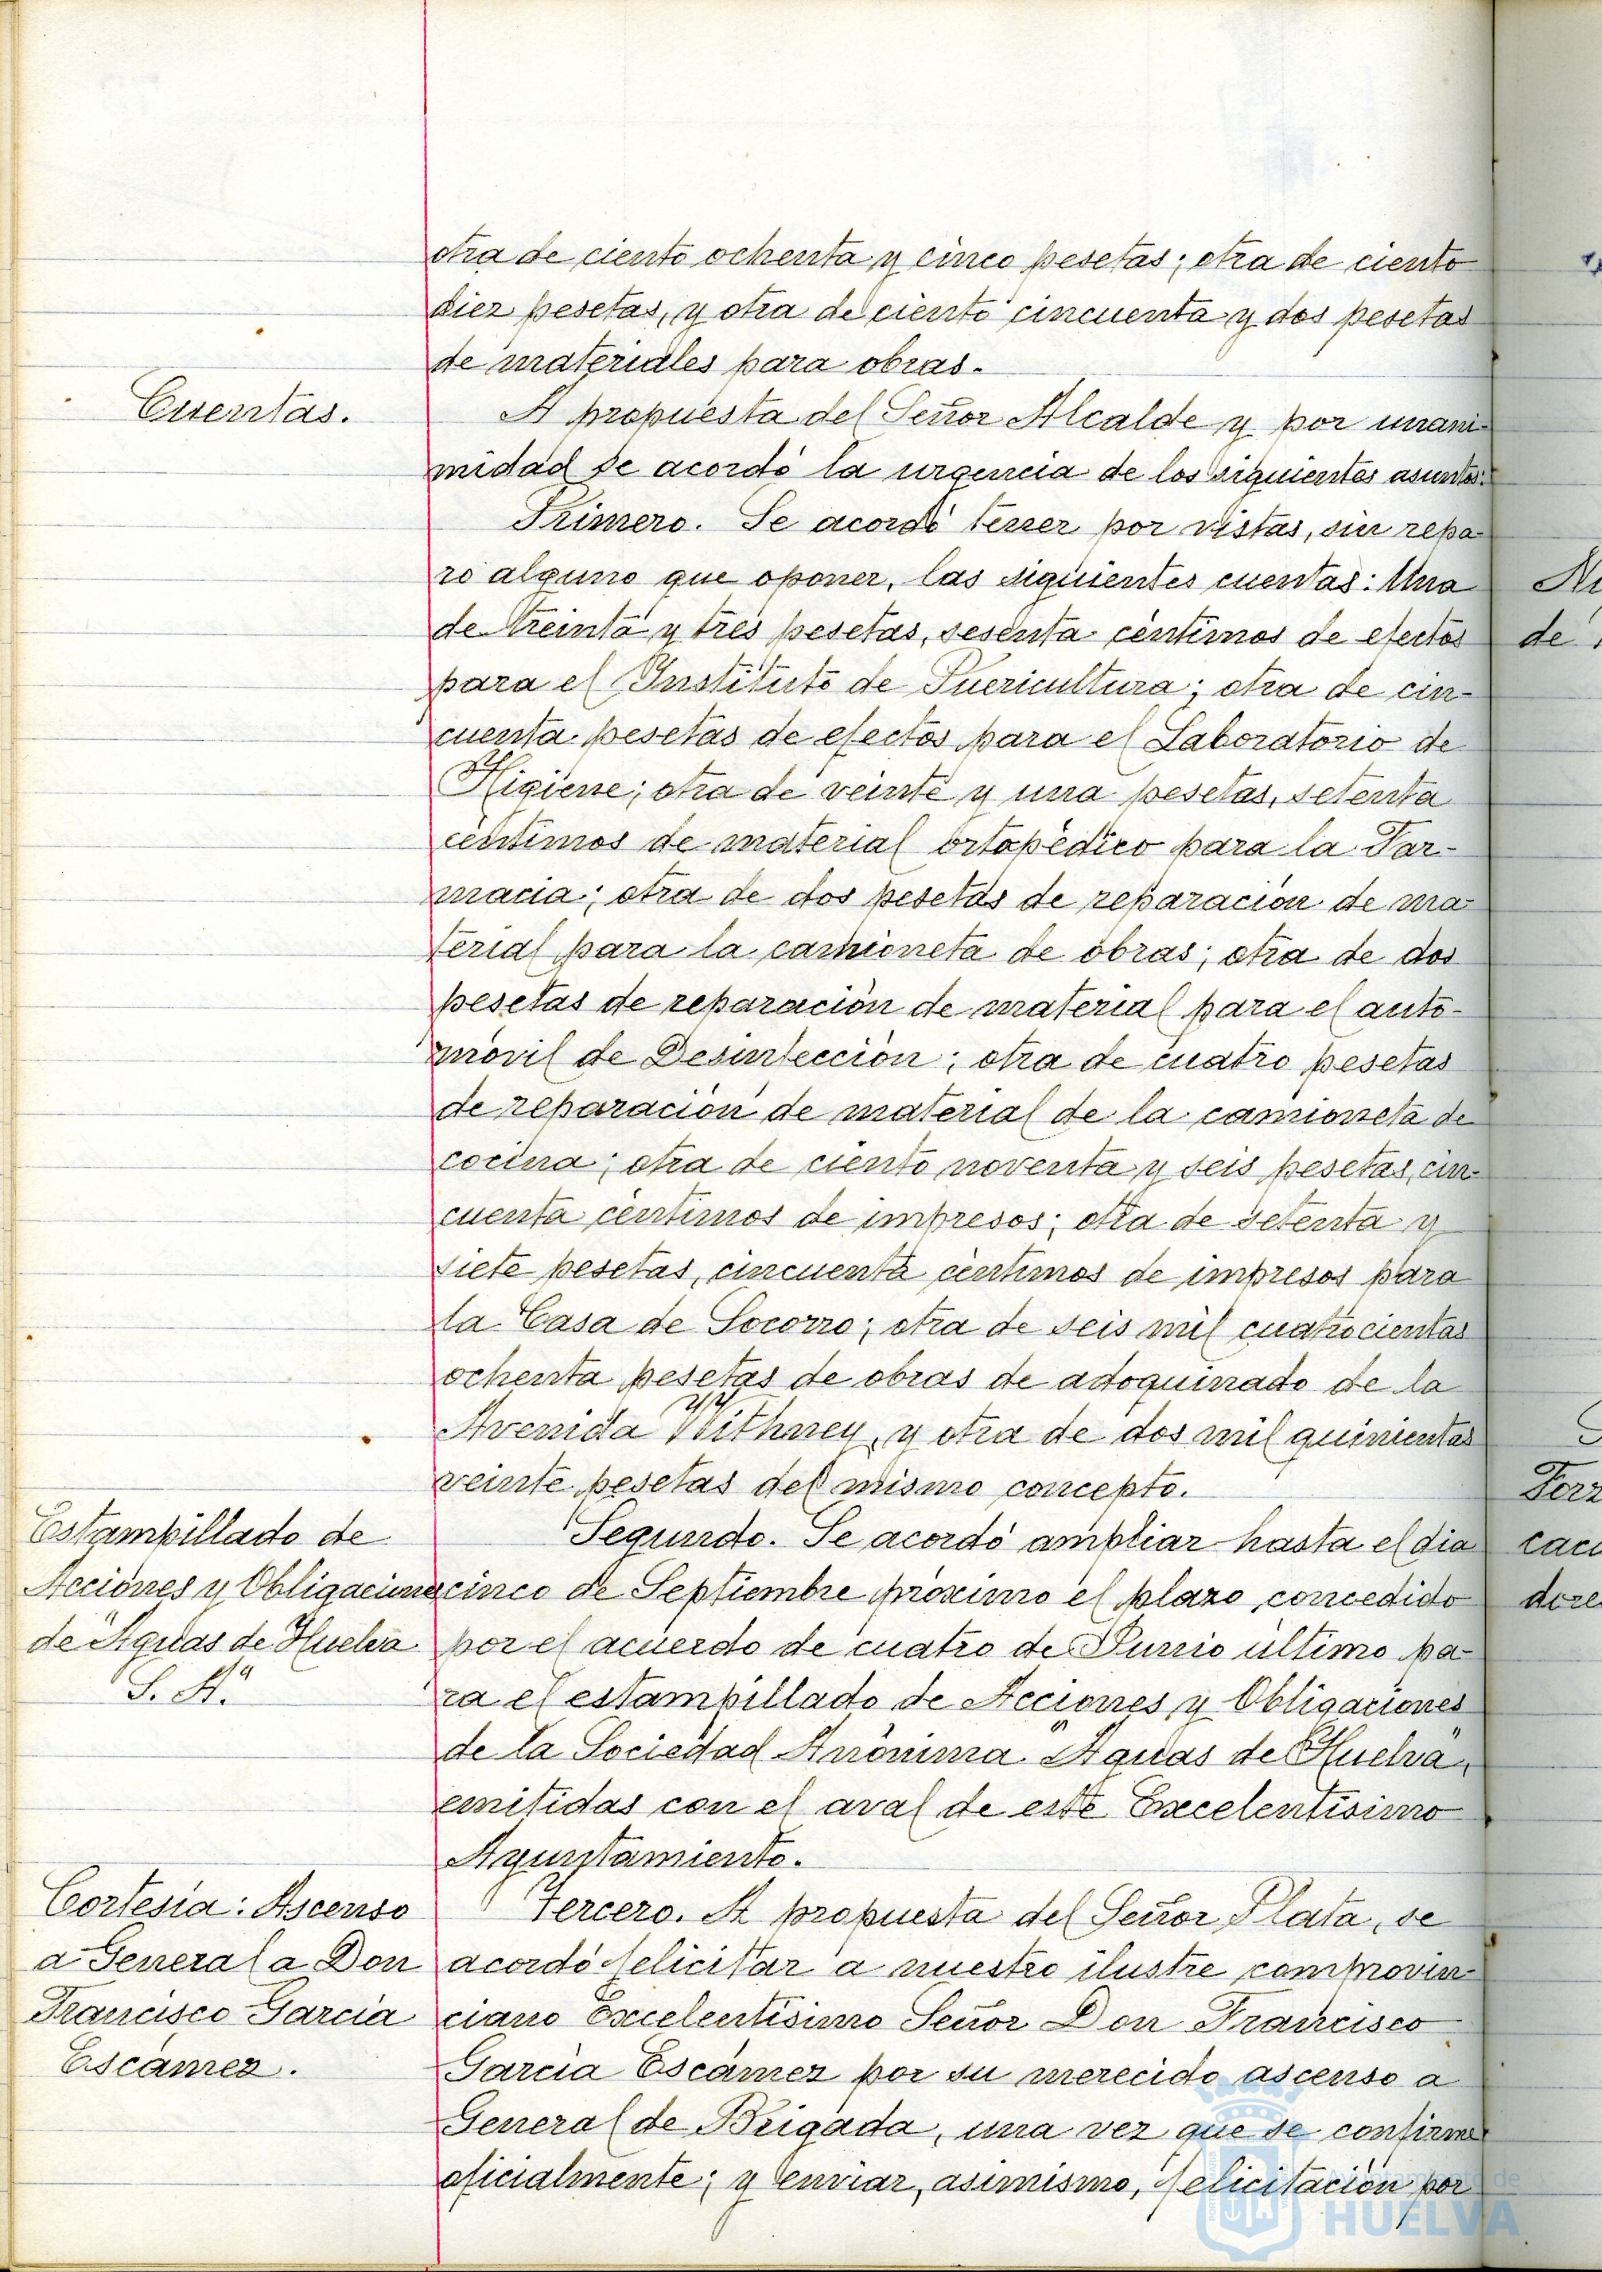 otra de ciento ochenta y cinco pesetas; otra de ciento
diez pesetas, y otra de ciento cincuenta y dos pesetas
de materiales para obras.
Cuentas.
A propuesta del Señor Alcalde y por unani-
midad se acordó la urgencia de los siguientes asuntos:
Primero. Se acordó tener por vistas, sin repa-
ro alguno que oponer, las siguientes cuentas: Una
de treinta y tres pesetas, sesenta céntimos de efectos
para el Instituto de Puericultura; otra de cin-
cuenta pesetas de efectos para el Laboratorio de
Higiene; otra de veinte y una pesetas, setenta
céntimos de material ortopédico para la Far-
macia; otra de dos pesetas de reparación de ma-
terial para la camioneta de obras; otra de dos
pesetas de reparación de material para el auto-
móvil de Desinfección; otra de cuatro pesetas
de reparación de material de la camioneta de
cocina; otra de ciento noventa y seis pesetas, cin-
cuenta céntimos de impresos; otra de setenta y
siete pesetas, cincuenta céntimos de impresos para
la Casa de Socorro; otra de seis mil cuatrocientas
ochenta pesetas de obras de adoquinado de la
Avenida Withney, y otra de dos mil quinientas
veinte pesetas del mismo concepto.
Estampillado de
Acciones y Obligaciones
de "Aguas de Huelva
S. A."
Segundo. Se acordó ampliar hasta el dia
cinco de Septiembre próximo el plazo concedido
por el acuerdo de cuatro de Junio último pa-
ra el estampillado de Acciones y Obligaciones
de la Sociedad Anónima "Aguas de Huelva",
emitidas con el aval de este Excelentísimo
Ayuntamiento.
Cortesía: Ascenso
a General a Don
Francisco García
Escámez.
Tercero. A propuesta del Señor Plata, se
acordó felicitar a nuestro ilustre comprovin-
ciano Excelentísimo Señor Don Francisco
García Escámez por su merecido ascenso a
General de Brigada, una vez que se confirme
oficialmente; y enviar, asimismo, felicitación por
Ayuntamiento de
HUELVA